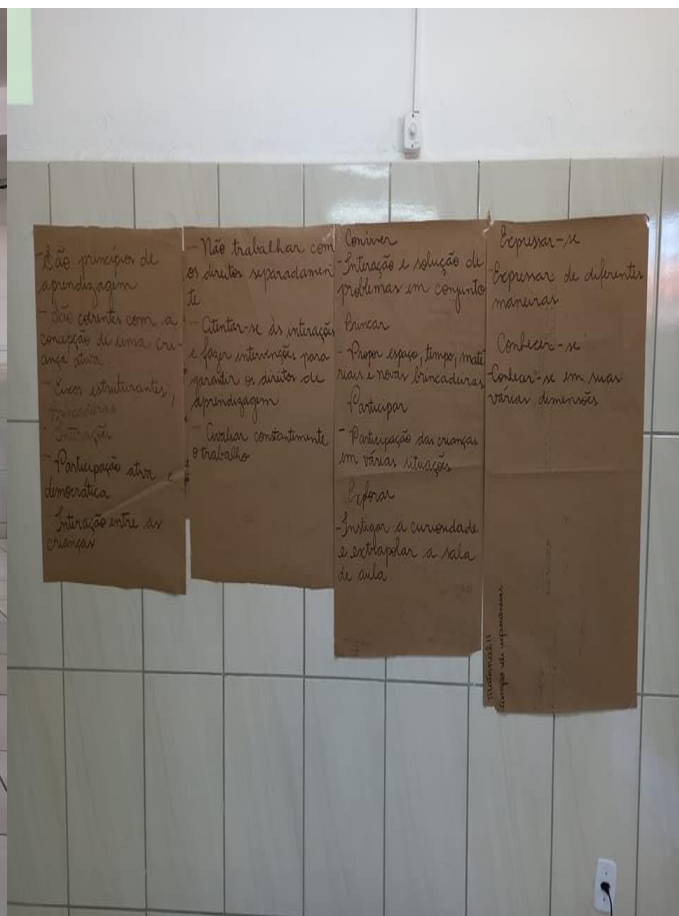 - São princípios de
aprendizagem
- São coerentes com a
concepção de uma cri-
ança ativa.
- Eixos estruturantes;
brincadeiras
Interações
- Participação ativa e
democrática
Interação entre as
crianças
- Não trabalhar com
os direitos separadamen
te
- Atentar-se às interações
e fazer intervenções para
garantir os direitos de
aprendizagem
- Avaliar constantemente
o trabalho
Conviver
- Interação e solução de
problemas em conjunto
Brincar
- Propor espaço, tempo, mate
riais e novas brincadeiras
Participar
- Participação das crianças
em várias situações
Explorar
- Instigar a curiosidade
e extrapolar a sala
de aula
Expressar-se
Expressar de diferentes
maneiras
Conhecer-se
- Conhecer-se em suas
várias dimensões
campo de experiências